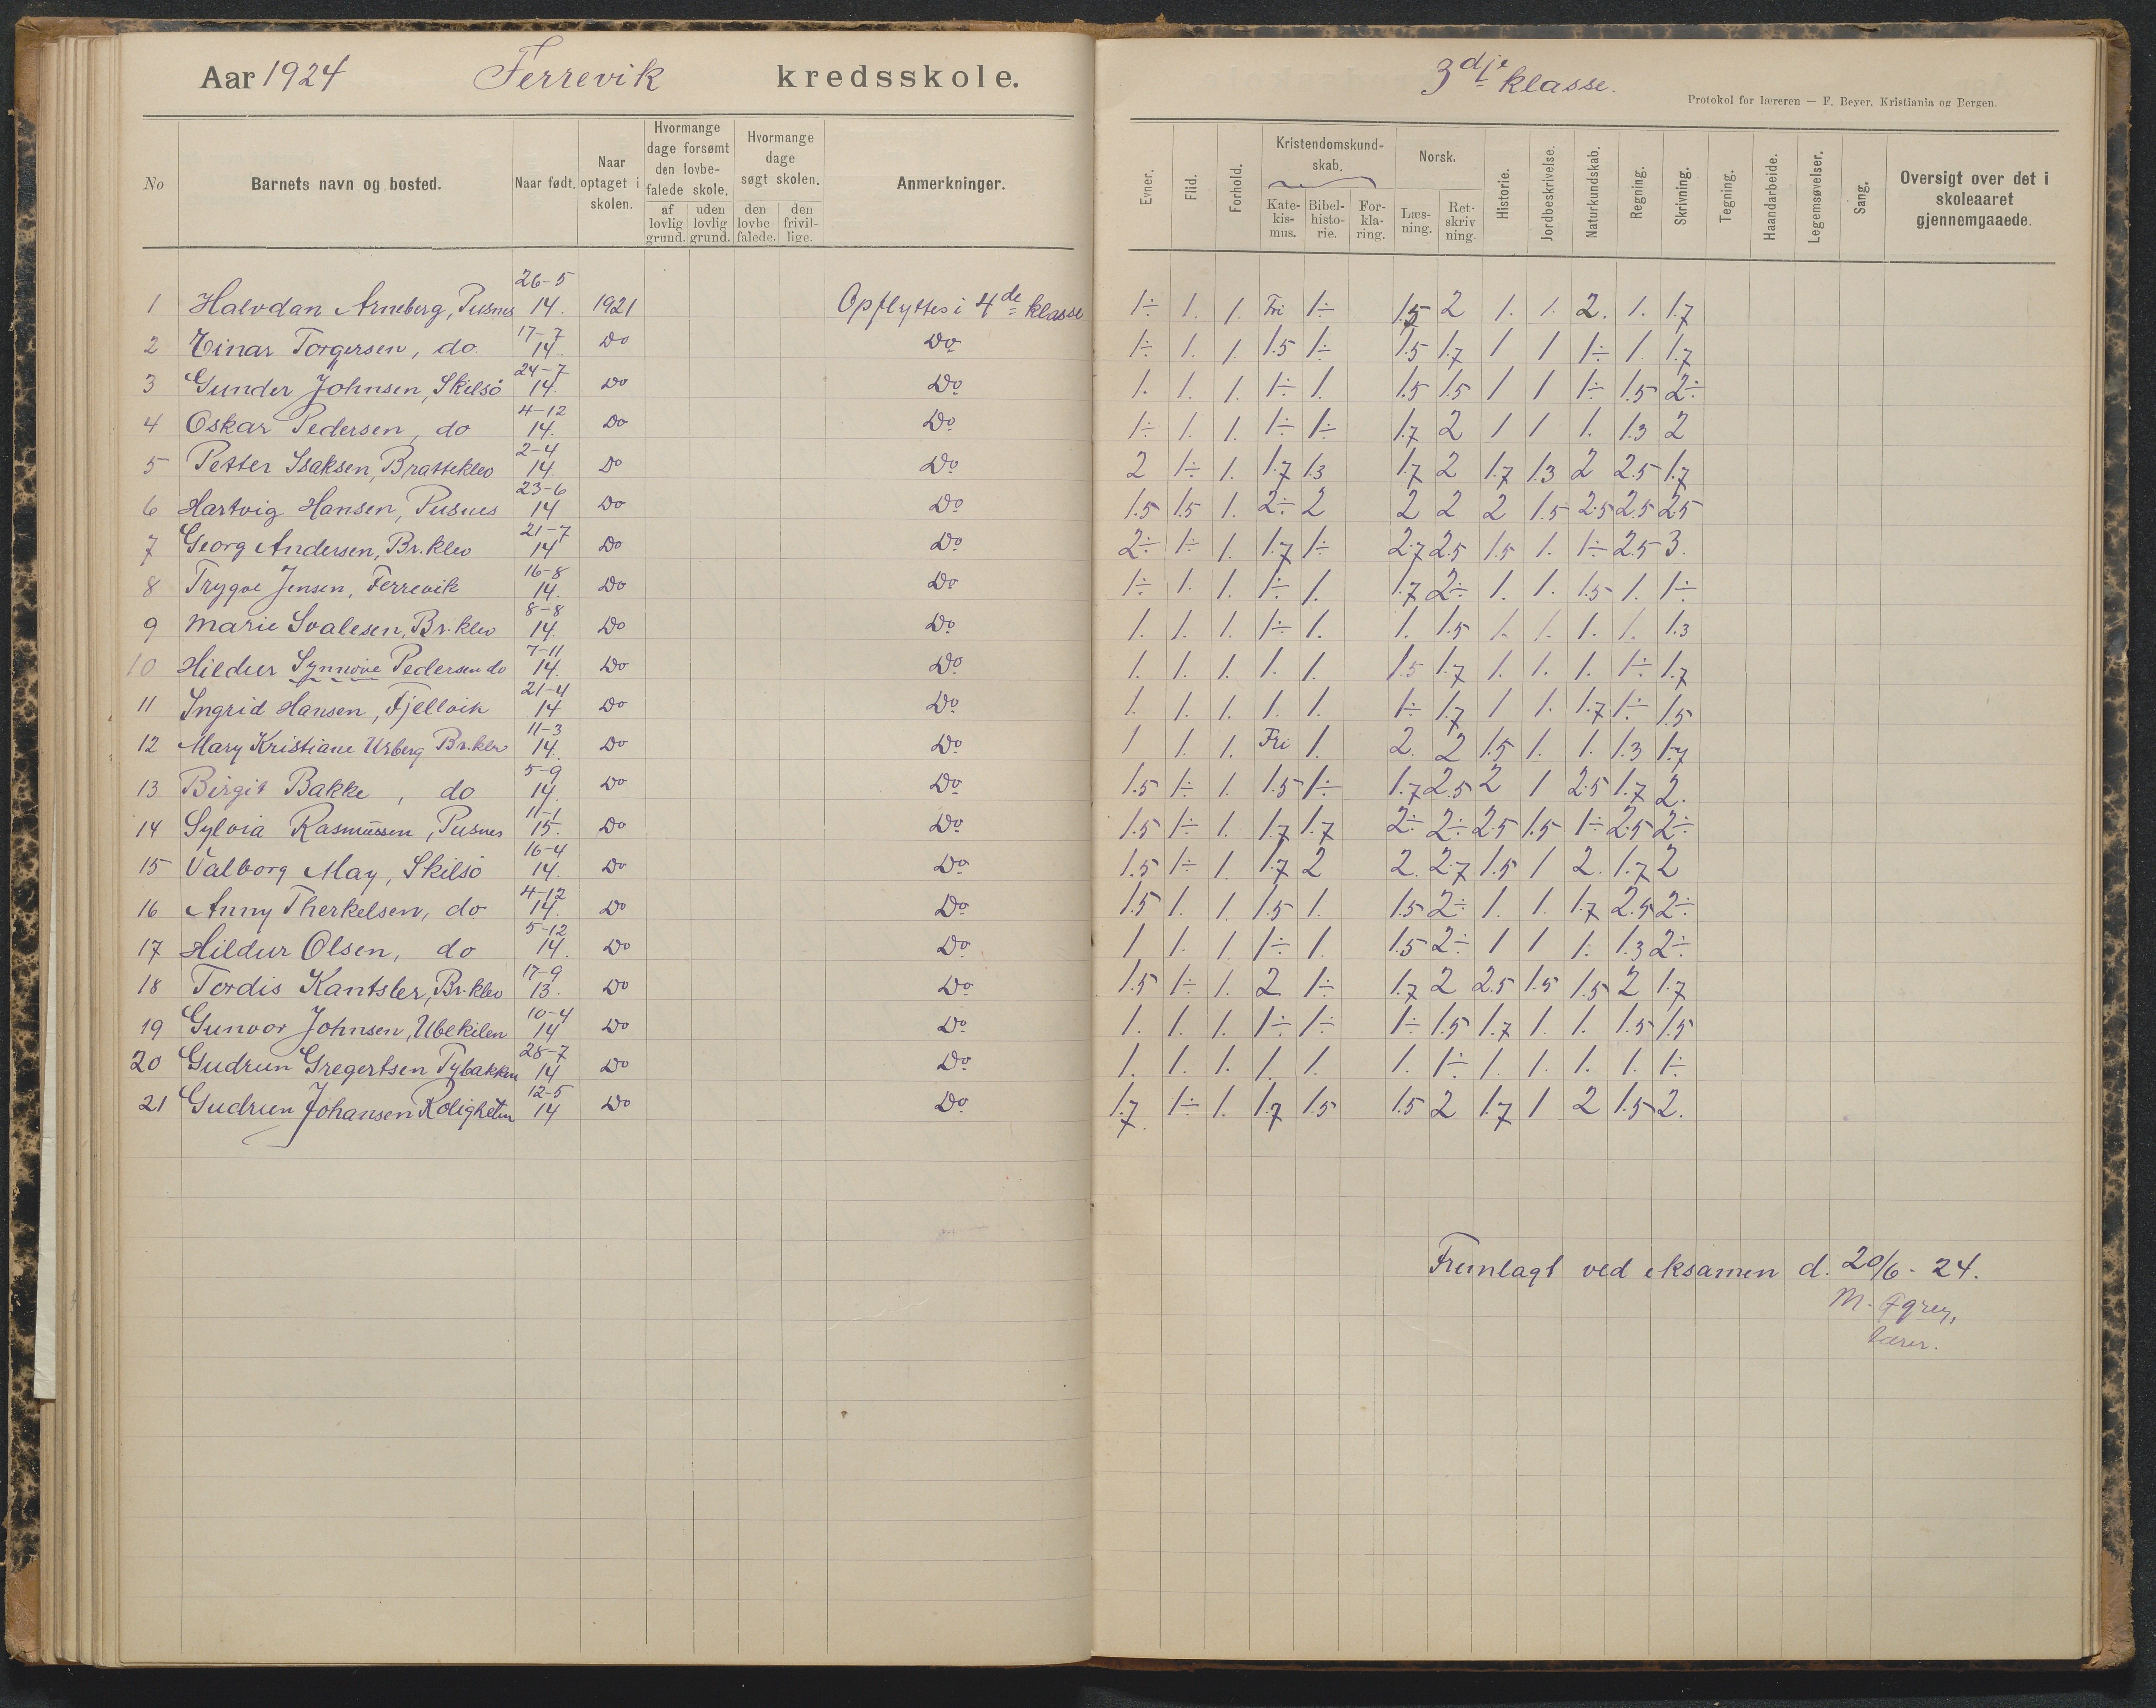 Aar 1924 Ferrevik kredsskole.
No
Barnets navn og bosted.
Naar født.
Naar optaget i skolen.
Hvormange dage forsømt den lovbefalede skole.
af lovlig grund.
uden lovlig grund.
Hvormange dage søgt skolen.
den lovbefalede.
den frivillige.
Anmerkninger.
1 Halvdan Arneberg, Pusnes 26-5 14. 1921 Opflyttes i 4de klasse
2 Einar Torgersen, do. 17-7 14. Do Do
3 Gunder Johnsen, Skilsö 24-7 14. Do Do
4 Oskar Pedersen, do 4-12 14. Do Do
5 Petter Isaksen, Bratteklev 2-4 14. Do Do
6 Hartvig Hansen, Pusnes 23-6 14 Do Do
7 Georg Andersen, Br.klev 21-7 14 Do Do
8 Trygve Jensen, Ferrevik 16-8 14. Do Do
9 Marie Svalesen, Br.klev 8-8 14. Do Do
10 Hildur Synnøve Pedersen do 7-11 14. Do Do
11 Ingrid Hansen, Fjellvik 21-4 14 Do Do
12 Mary Kristiane Urberg Br.klev 11-3 14. Do Do
13 Birgit Bakke, do 5-9 14. Do Do
14 Sylvia Rasmussen, Pusnes 11-1 15. Do Do
15 Valborg May, Skilsö 16-4 14. Do Do
16 Anny Therkelsen, do 4-12 14. Do Do
17 Hildur Olsen, do 5-12 14. Do Do
18 Tordis Kantsler, Br.klev 17-9 13. Do Do
19 Gunvor Johnsen, Ubekilen 10-4 14 Do Do
20 Gudrun Gregertsen Tybakken 28-7 14 Do Do
21 Gudrun Johansen Roligheten 12-5 14 Do Do
3dje klasse.
Protokol for læreren — F. Beyer, Kristiania og Bergen.
Evner.
Flid.
Forhold.
Kristendomskundskab.
Katekismus.
Bibelhistorie.
Forklaring.
Norsk.
Læsning.
Retskrivning.
Historie.
Jordbeskrivelse.
Naturkundskab.
Regning.
Skrivning.
Tegning.
Haandarbeide.
Legemsøvelser.
Sang.
Oversigt over det i skoleaaret gjennemgaaede.
1÷ 1. 1. Fri 1÷ 1.5 2 1. 1. 2. 1. 1.7
1÷ 1. 1. 1.5 1÷ 1.5 1.7 1 1 1÷ 1. 1.7
1. 1. 1. 1÷ 1. 1.5 1.5 1 1 1÷ 1.5 2÷
1÷ 1. 1. 1÷ 1÷ 1.7 2 1 1 1. 1.3 2
2 1÷ 1. 1.7 1.3 1.7 2 1.7 1.3 2 2.5 1.7
1.5 1.5 1. 2÷ 2 2 2 2 1.5 2.5 2.5 2.5
2÷ 1÷ 1. 1.7 1÷ 2.7 2.5 1.5 1. 1÷ 2.5 3.
1÷ 1. 1. 1÷ 1. 1.7 2÷ 1. 1. 1.5 1. 1÷
1. 1. 1. 1÷ 1. 1. 1.5 1. 1. 1. 1. 1.3
1. 1. 1. 1. 1. 1.5 1.7 1. 1. 1. 1÷ 1.7
1. 1. 1. 1. 1. 1÷ 1.7 1 1. 1.7 1÷ 1.5
1 1. 1. Fri 1. 2. 2 1.5 1. 1. 1.3 1.7
1.5 1÷ 1. 1.5 1÷ 1.7 2.5 2 1 2.5 1.7 2.
1.5 1÷ 1. 1.7 1.7 2÷ 2÷ 2.5 1.5 1÷ 2.5 2÷
1.5 1÷ 1. 1.7 2 2. 2.7 1.5 1 2. 1.7 2
1.5 1. 1. 1.5 1. 1.5 2÷ 1. 1. 1.7 2.5 2÷
1 1. 1. 1÷ 1. 1.5 2÷ 1 1 1. 1.3 2÷
1.5 1÷ 1. 2 1÷ 1.7 2 2.5 1.5 1.5 2 1.7
1. 1. 1. 1÷ 1÷ 1÷ 1.5 1.7 1. 1. 1.5 1.5
1. 1. 1. 1. 1. 1. 1÷ 1. 1. 1. 1. 1÷
1.7. 1÷ 1. 1.7 1.5 1.5 2 1.7 1 2 1.5 2.
Fremlagt ved eksamen d. 20/6 - 24.
M.
lærer.